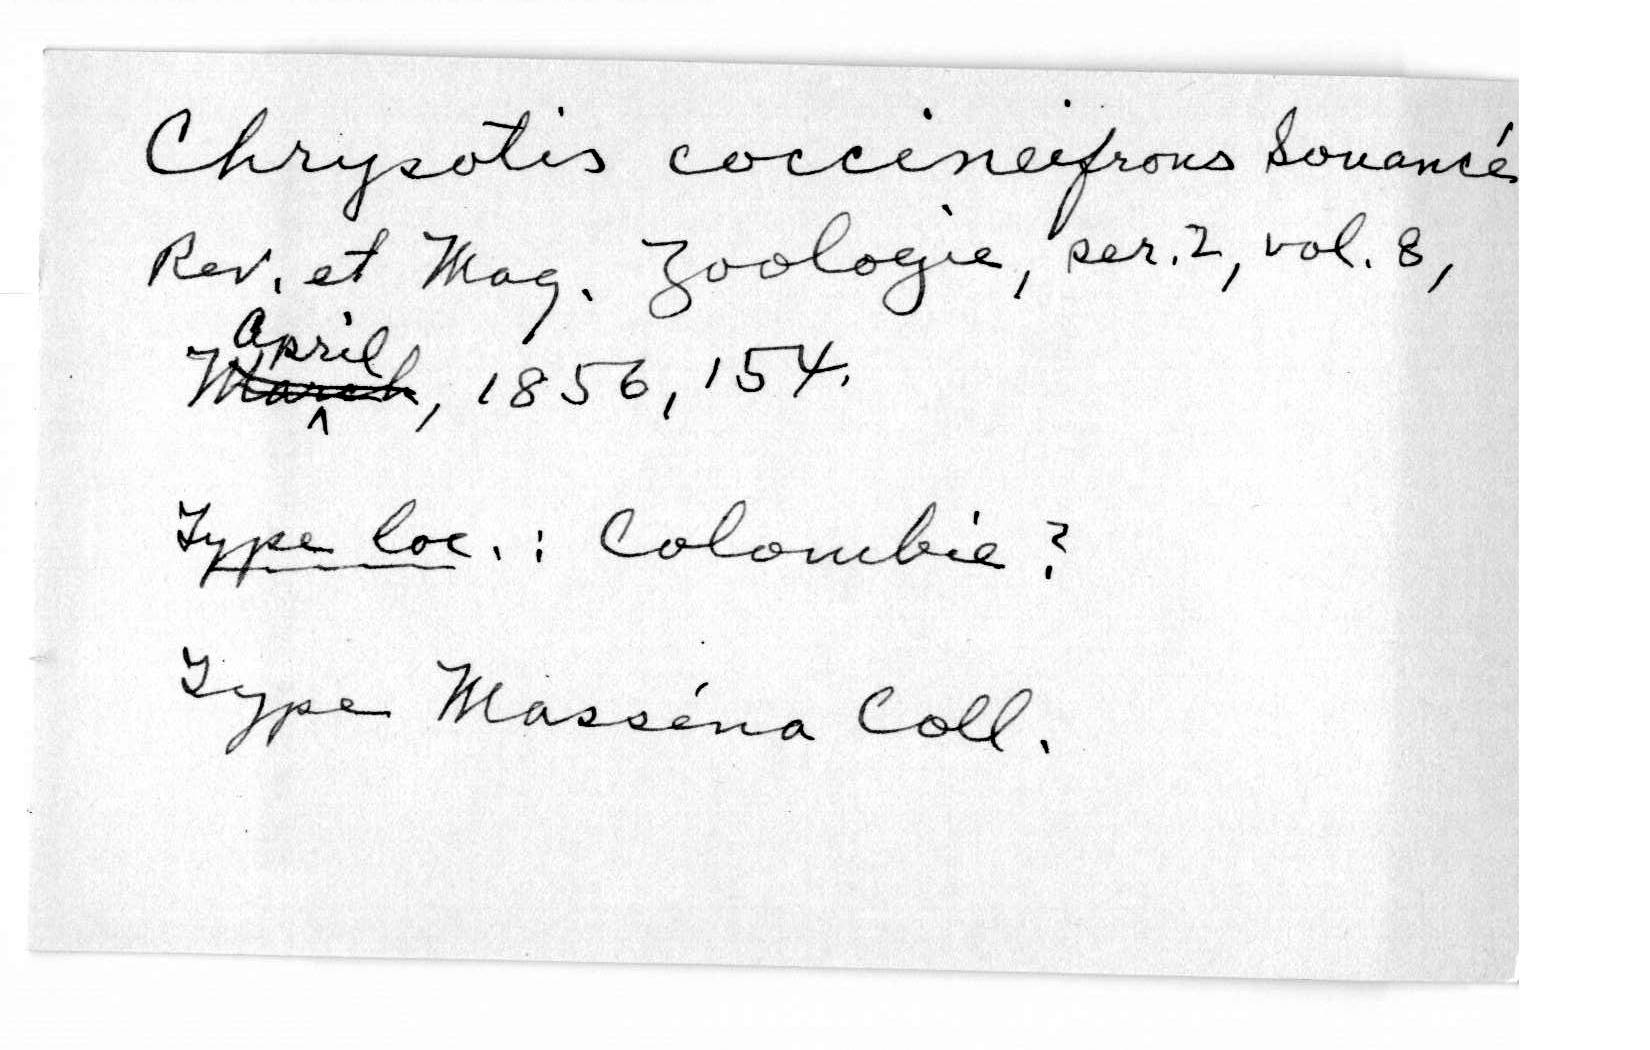 Chrysotis coccineifrons Souancé
Rev. et Mag. Zoologie, ser. 2, vol. 8,
April
March, 1856, 154.
Type loc. : Colombie ?
Type Masséna Coll.